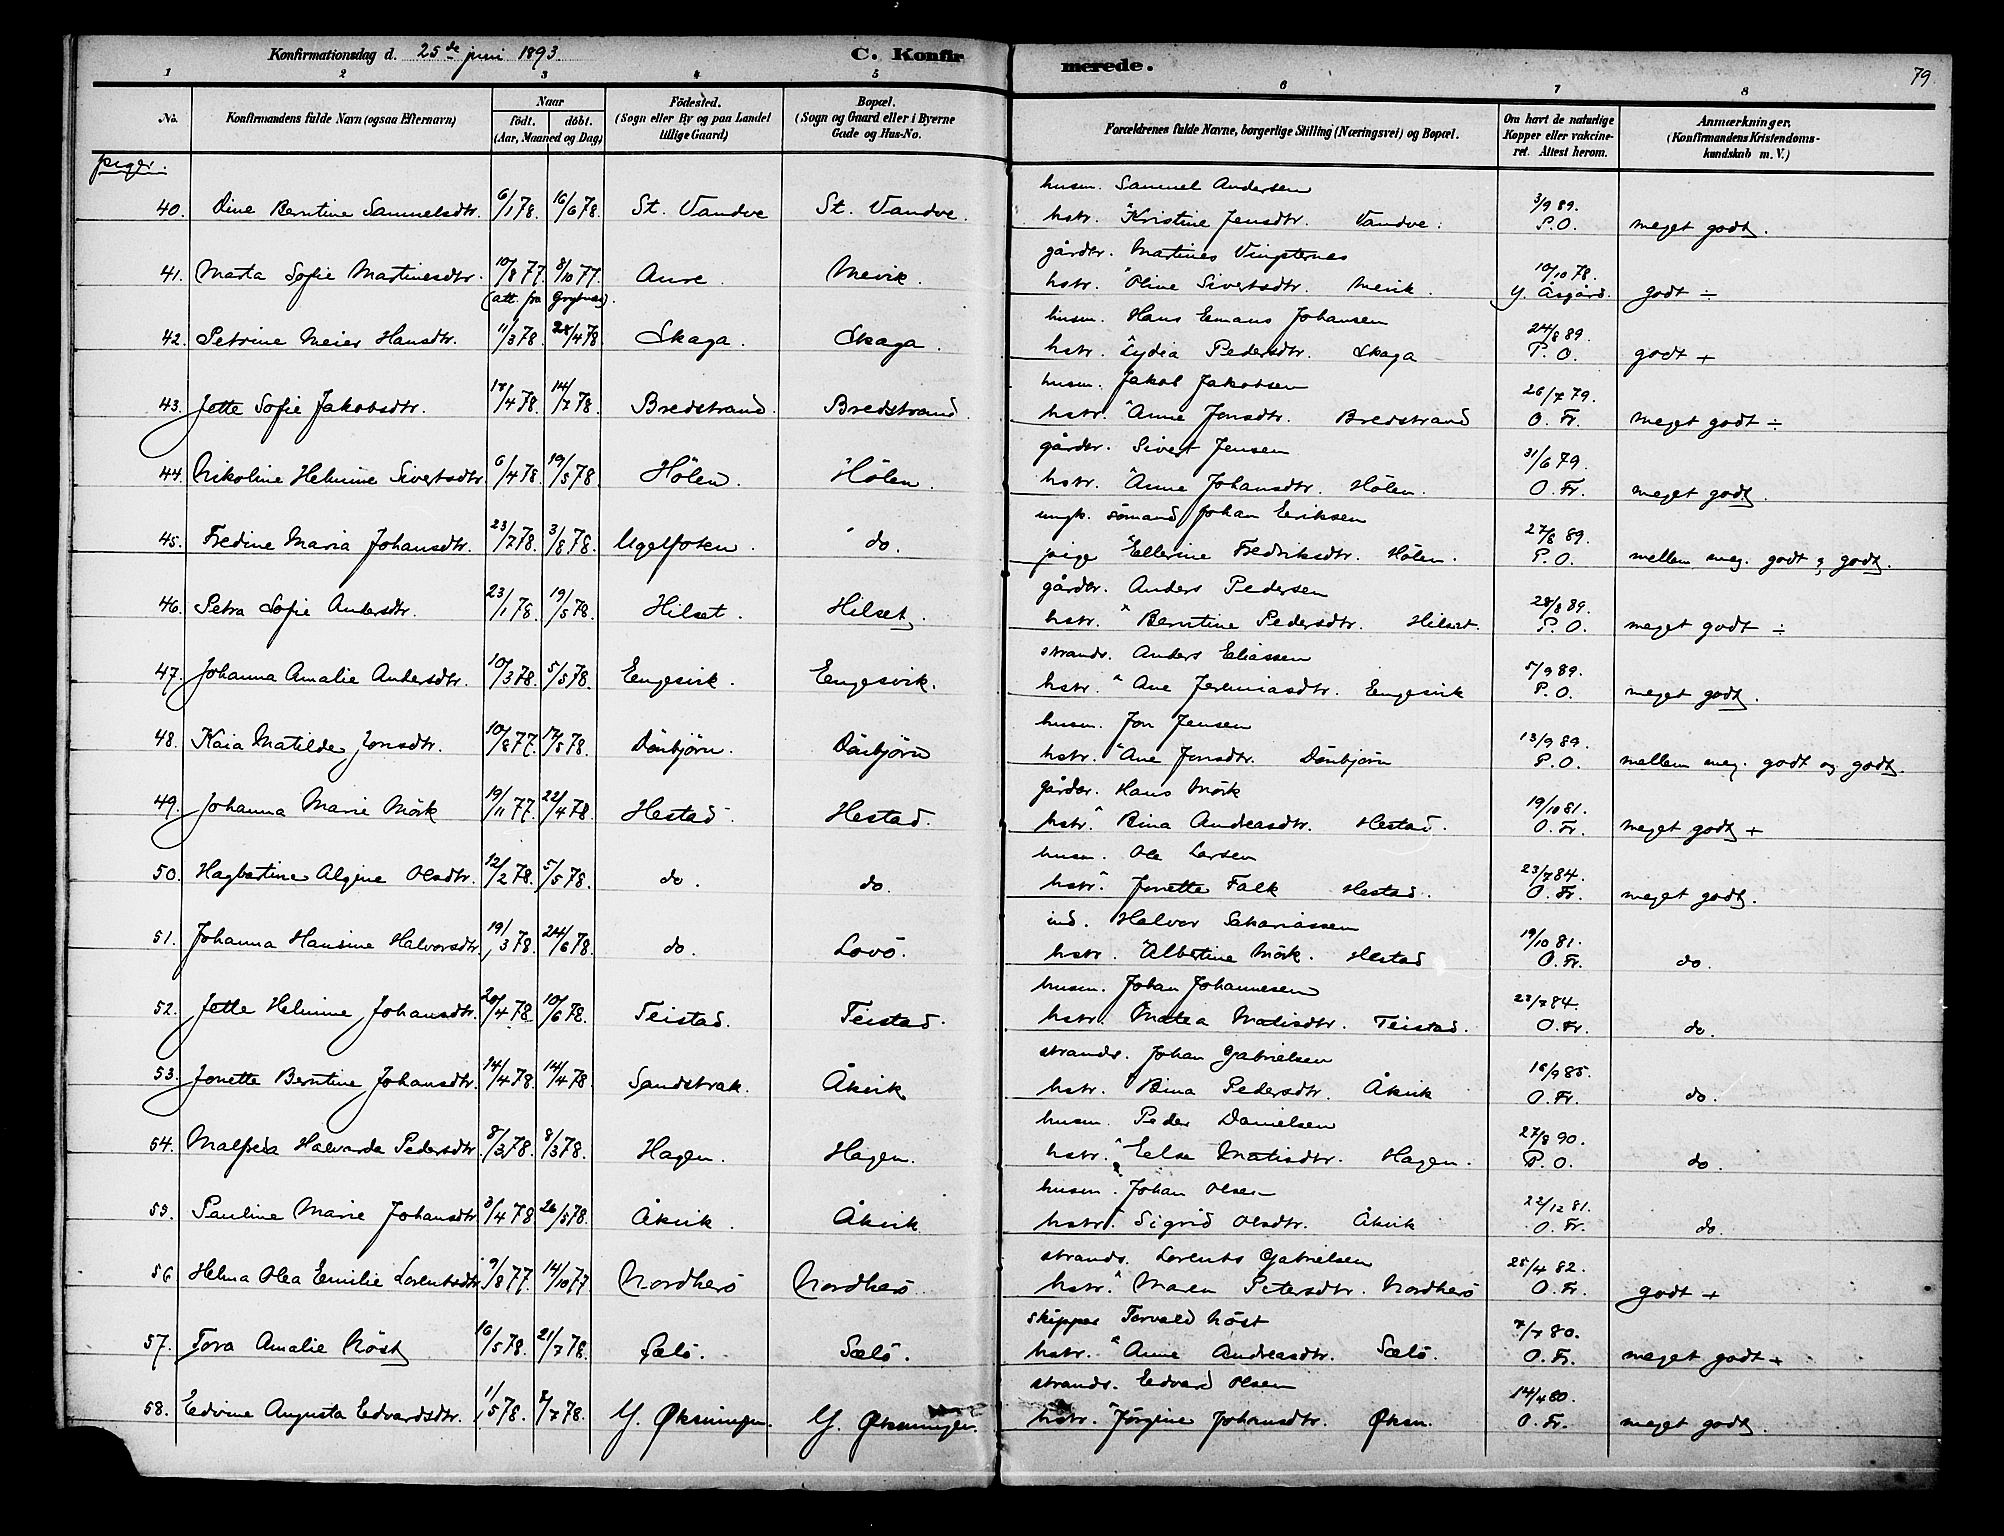 Konfirmationsdag d. 25de juni 1893. C. Konfirmerede. 79
1 2 3 4 5 6 7 8
No. Konfirmandens fulde Navn (ogsaa Efternavn) Naar født. døbt. (Aar, Maaned og Dag) Fødested. (Sogn eller By og paa Landet tillige Gaard) Bopæl. (Sogn og Gaard eller i Byerne Gade og Hus-No. Forældrenes fulde Navne, borgerlige Stilling (Næringsvei) og Bopæl. Om havt de naturlige Kopper eller vakcineret. Attest herom. Anmærkninger, (Konfirmandens Kristendomskundskab m. V.)
piger.
husm. Samuel Andersen
40. Dine Berntine Samuelsdtr. 6/1 78. 16/6 78. St. Vandve St. Vandve. hstr. Kristine Jensdtr. Vandve. 3/9 89. P.O. meget godt.
gårdbr. Martines Vingsternes
41. Marta Sofie Martinesdtr. 10/8 77. 8/10 77. Aure. Mevik. hstr. Oline Sivertsdtr. Mevik. 10/10 78. Y. Åsgård. godt ÷
(att. fra Grytnes).
husm. Hans Emaus Johansen
42. Petrine Meier Hansdtr. 11/3 78. 28/4 78 Skaga. Skaga. hstr. Lydia Pedersdtr. Skaga 24/8 89. P.O. godt +
husm. Jakob Jakobsen
43. Jette Sofie Jakobsdtr. 17/4 78. 14/7 78. Bredstrand. Bredstrand. hstr. Anne Jonsdtr. Bredstrand 26/7 79. O. Fr. meget godt ÷
gårdbr. Sivert Jensen
44. Nikoline Helmine Sivertsdtr 6/4 78. 19/5 78. Hølen. Hølen. hstr. Anne Johansdtr. Hølen. 31/6 79. O. Fr. meget godt.
ungk. sömand Johan Eriksen
45. Fredine Maria Johansdtr. 23/7 78. 3/8 78. Ugelfoten. do. pige Ellerine Fredriksdtr. Hølen. 27/8 89. P.O. mellem meg. godt og godt.
gårdbr. Anders Pedersen
46. Petra Sofie Andersdtr. 23/1 78. 19/5 78. Hilset. Hilset. hstr. Berntine Pedersdtr. Hilset. 28/8 89. P.O. meget godt ÷
strands. Anders Eliassen
47. Johanna Amalie Andersdtr. 10/3 78. 5/5 78. Engesvik. Engesvik. hstr. Ane Jeremiasdtr. Engesvik 5/9 89. P.O. meget godt.
husm. Jon Jensen
48. Kaia Matilde Jonsdtr. 10/8 77. 17/5 78. Dönbjørn. Dönbjørn hstr. Ane Jonsdtr. Dönbjørn 13/9 89. P.O. mellem meg. godt og godt.
gårdbr. Hans Mörk
49. Johanna Marie Mörk 19/11 77. 22/4 78. Hestad. Hestad. hstr. Bina Andreasdtr. Hestad. 19/10 81. O. Fr. meget godt +
husm. Ole Larsen
50. Hagbartine Algine Olsdtr. 12/2 78. 5/5 78. do. do. hstr. Jonette Falk Hestad. 23/7 84. O. Fr. meget godt.
ind. Halvor Sakariassen
51. Johanna Hansine Halvorsdtr. 19/3 78. 24/6 78. do. Lovö. hstr. Albertine Mörk. Hestad 19/10 81. O. Fr. do.
husm. Johan Johannesen
52. Jette Helmine Johansdtr. 20/4 78. 10/6 78. Teistad. Teistad. hstr. Matea Matisdtr. Teistad. 23/7 84. O. Fr. do.
strands. Johan Gabrielsen
53. Jonette Berntine Johansdtr. 14/4 78. 14/4 78 Sandstrak. Åkvik. hstr. Bina Pedersdtr. Åkvik 16/9 85. O. Fr. do.
husm. Peder Danielsen
54. Malfrida Halvarda Pedersdtr. 8/3 78. 8/3 78. Hagen. Hagen. hstr. Else Matisdtr. Hagen. 27/8 90. P.O. do.
husm. Johan Olsen
55. Pauline Marie Johansdtr 3/4 78 26/5 78. Åkvik. Åkvik. hstr. Sigrid Olsdtr. Åkvik 22/12 81. O. Fr. do
strands. Lorents Gabrielsen
56 Helma Olea Emilie Lorentsdtr. 9/8 77. 14/10 77 Nordherö Nordherö. hstr. Maren Petersdtr. Nordherö 25/4 82. O. Fr. godt +
skipper Torvald Höst
57. Tora Amalie Höst 16/5 78. 21/7 78. Sælö. Sælö. hstr. Anne Andreasdtr. Sælö. 7/7 80. O. Fr. meget godt +
strands. Edvard Olsen
58. Edvine Augusta Edvardsdtr. 1/5 78. 7/7 78. Y. Øksningen. Y. Øksningen. hstr. Jörgine Johansdtr. Øksn. 14/4 80. O. Fr. meget godt.